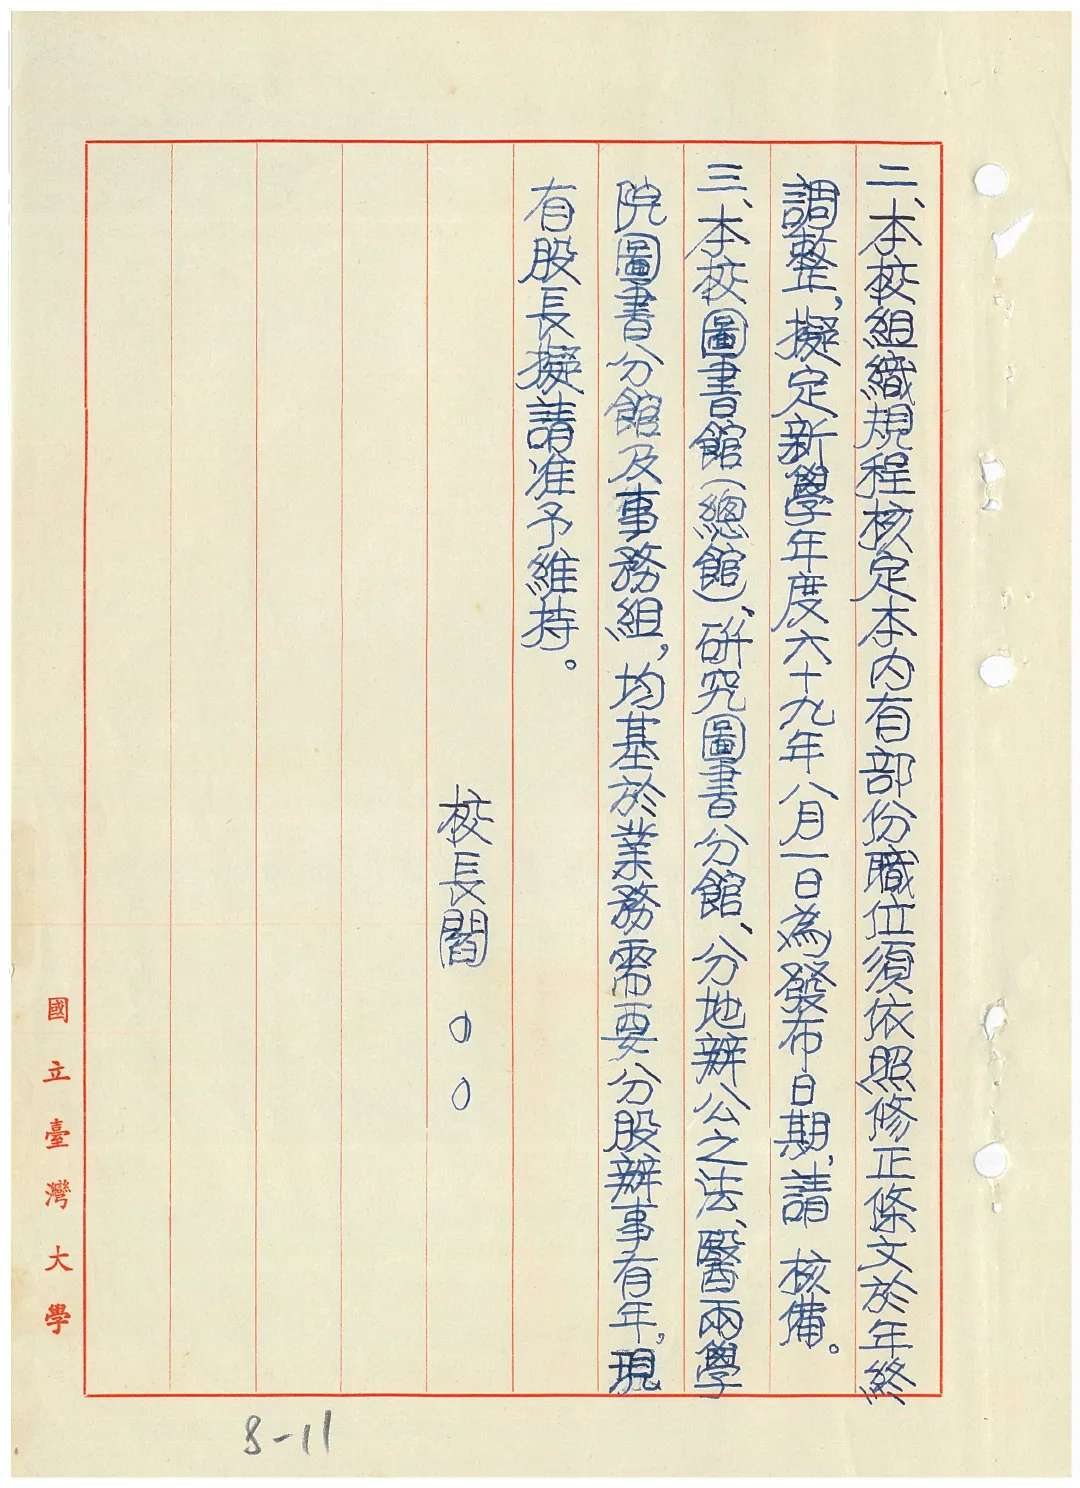 二、本校組織規程核定本內有部份職位須依照修正條文於年終
調整，擬定新學年度六十九年八月一日為發布日期，請　核備。
三、本校圖書館（總館）、研究圖書分館、分地辦公之法、醫兩學
院圖書分館及事務組，均基於業務需要分股辦事有年，現
有股長擬請准予維持。
校長閻○○
國立臺灣大學
8-11